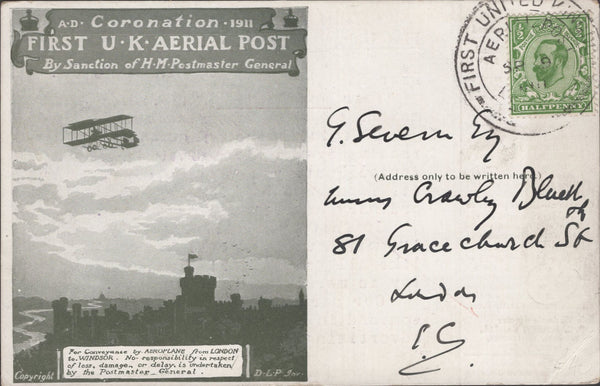 A·D· Coronation · 1911
FIRST U·K·AERIAL POST
By Sanction of H·M·Postmaster General
For Conveyance by AEROPLANE from LONDON
to WINDSOR. No responsibility in respect
of loss, damage, or delay, is undertaken
by the Postmaster General.
Copyright
D·L·P Inv.
FIRST UNITED
AER
HALFPENNY
G. Severn Esq
(Address only to be written here.)
Crawley
81 Gracechurch St
London
E.C.